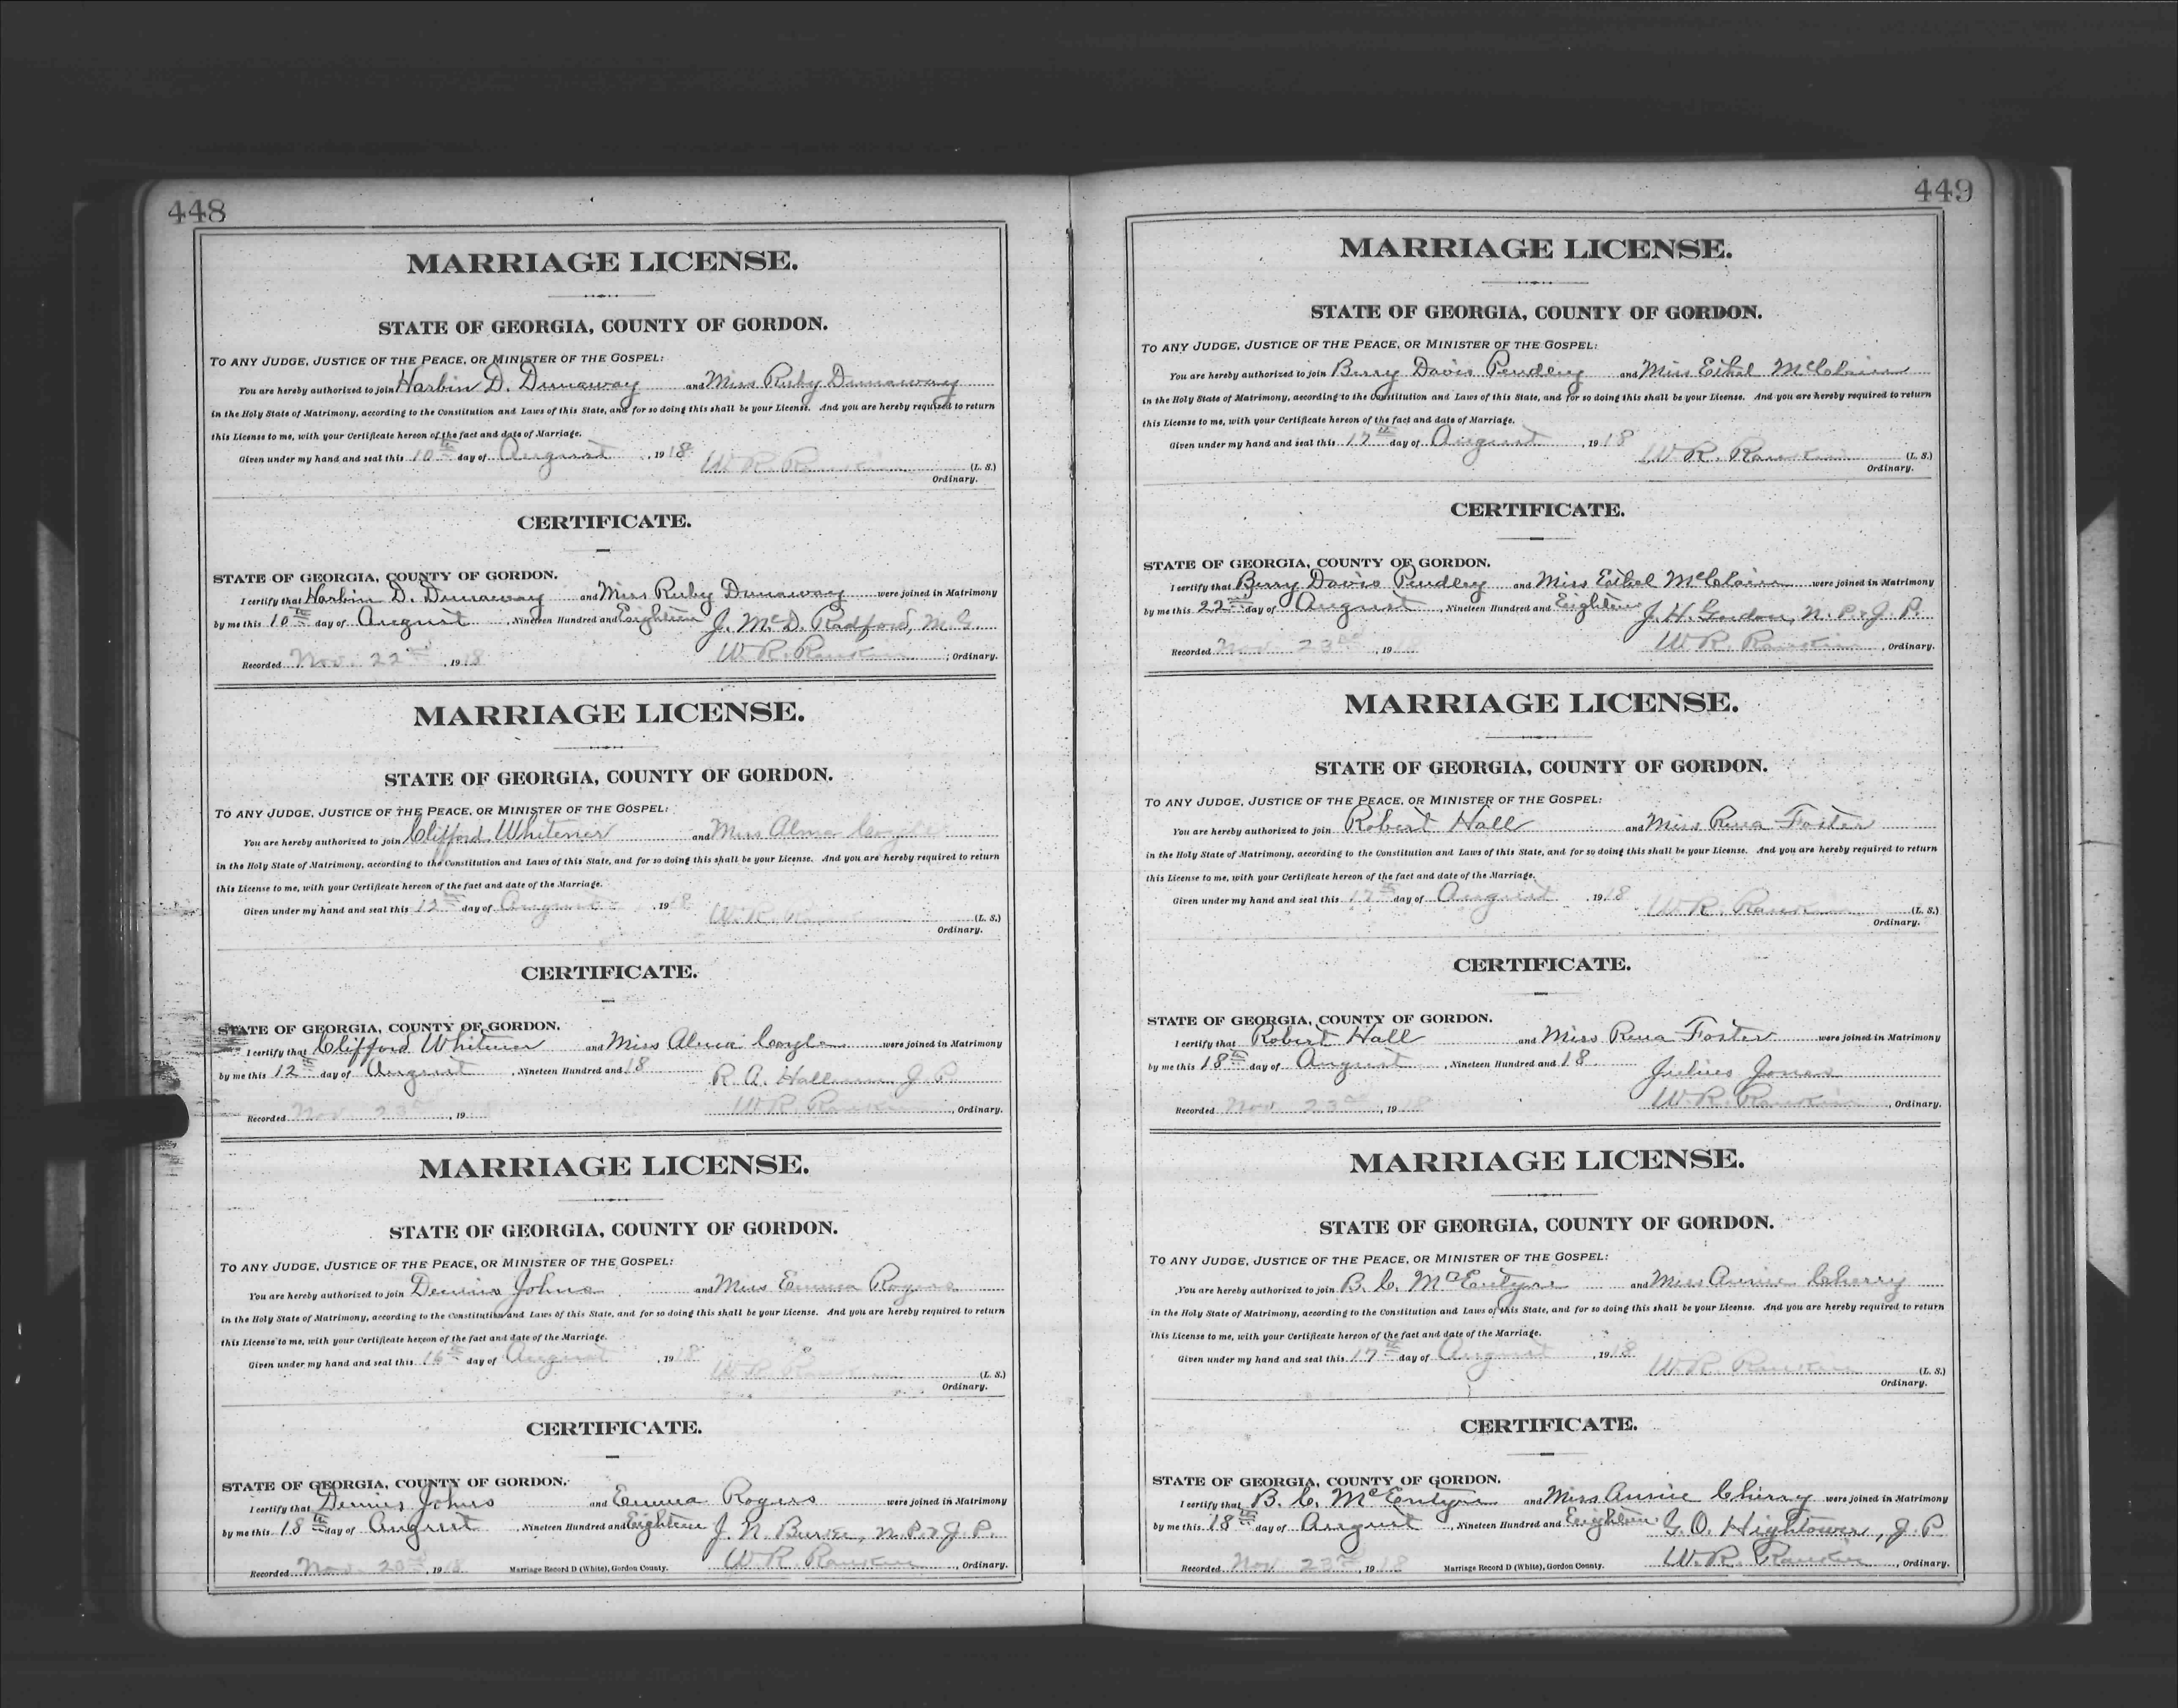 448
MARRIAGE LICENSE.
STATE OF GEORGIA, COUNTY OF GORDON.
TO ANY JUDGE, JUSTICE OF THE PEACE, OR MINISTER OF THE GOSPEL:
You are hereby authorized to join Harbin D. Dunaway and Miss Ruby Dunaway
in the Holy State of Matrimony, according to the Constitution and Laws of this State, and for so doing this shall be your License. And you are hereby required to return
this License to me, with your Certificate hereon of the fact and date of Marriage.
Given under my hand and seal this 10th day of August, 1918 W. R. Rankin (L. S.)
Ordinary.
CERTIFICATE.
STATE OF GEORGIA, COUNTY OF GORDON.
I certify that Harbin D. Dunaway and Miss Ruby Dunaway were joined in Matrimony
by me this 10th day of August, Nineteen Hundred and Eighteen J. McD. Radford, M. G.
Recorded Nov. 22nd, 1918 W. R. Rankin, Ordinary.
MARRIAGE LICENSE.
STATE OF GEORGIA, COUNTY OF GORDON.
TO ANY JUDGE, JUSTICE OF THE PEACE, OR MINISTER OF THE GOSPEL:
You are hereby authorized to join Clifford Whitener and Miss Alma
in the Holy State of Matrimony, according to the Constitution and Laws of this State, and for so doing this shall be your License. And you are hereby required to return
this License to me, with your Certificate hereon of the fact and date of the Marriage.
Given under my hand and seal this 12th day of August, 1918 W. R. Rankin (L. S.)
Ordinary.
CERTIFICATE.
STATE OF GEORGIA, COUNTY OF GORDON.
I certify that Clifford Whitener and Miss Alma were joined in Matrimony
by me this 12th day of August, Nineteen Hundred and 18 R. A. Hall J. P.
Recorded Nov. 23rd, 19 W. R. Rankin, Ordinary.
MARRIAGE LICENSE.
STATE OF GEORGIA, COUNTY OF GORDON.
TO ANY JUDGE, JUSTICE OF THE PEACE, OR MINISTER OF THE GOSPEL:
You are hereby authorized to join Dennis Johns and Miss Emma Rogers
in the Holy State of Matrimony, according to the Constitution and Laws of this State, and for so doing this shall be your License. And you are hereby required to return
this License to me, with your Certificate hereon of the fact and date of the Marriage.
Given under my hand and seal this 16th day of August, 1918 W. R. Rankin (L. S.)
Ordinary.
CERTIFICATE.
STATE OF GEORGIA, COUNTY OF GORDON.
I certify that Dennis Johns and Emma Rogers were joined in Matrimony
by me this 18th day of August, Nineteen Hundred and Eighteen J. N. Burke, N. P. & J. P.
Recorded Nov. 1918 Marriage Record D (White), Gordon County. W. R. Rankin, Ordinary.
449
MARRIAGE LICENSE.
STATE OF GEORGIA, COUNTY OF GORDON.
TO ANY JUDGE, JUSTICE OF THE PEACE, OR MINISTER OF THE GOSPEL:
You are hereby authorized to join Berry Davis Pendley and Miss Ethel McClain
in the Holy State of Matrimony, according to the Constitution and Laws of this State, and for so doing this shall be your License. And you are hereby required to return
this License to me, with your Certificate hereon of the fact and date of Marriage.
Given under my hand and seal this 17th day of August, 1918 W. R. Rankin (L. S.)
Ordinary.
CERTIFICATE.
STATE OF GEORGIA, COUNTY OF GORDON.
I certify that Berry Davis Pendley and Miss Ethel McClain were joined in Matrimony
by me this 22nd day of August, Nineteen Hundred and Eighteen J. H. Gordon, N. P. & J. P.
Recorded Nov. 23rd, 1918 W. R. Rankin, Ordinary.
MARRIAGE LICENSE.
STATE OF GEORGIA, COUNTY OF GORDON.
TO ANY JUDGE, JUSTICE OF THE PEACE, OR MINISTER OF THE GOSPEL:
You are hereby authorized to join Robert Hall and Miss Rena Foster
in the Holy State of Matrimony, according to the Constitution and Laws of this State, and for so doing this shall be your License. And you are hereby required to return
this License to me, with your Certificate hereon of the fact and date of the Marriage.
Given under my hand and seal this 17th day of August, 1918 W. R. Rankin (L. S.)
Ordinary.
CERTIFICATE.
STATE OF GEORGIA, COUNTY OF GORDON.
I certify that Robert Hall and Miss Rena Foster were joined in Matrimony
by me this 18th day of August, Nineteen Hundred and 18. Julius Jones
Recorded Nov. 23rd, 1918 W. R. Rankin, Ordinary.
MARRIAGE LICENSE.
STATE OF GEORGIA, COUNTY OF GORDON.
TO ANY JUDGE, JUSTICE OF THE PEACE, OR MINISTER OF THE GOSPEL:
You are hereby authorized to join B. C. McEntyre and Miss Annie Cherry
in the Holy State of Matrimony, according to the Constitution and Laws of this State, and for so doing this shall be your License. And you are hereby required to return
this License to me, with your Certificate hereon of the fact and date of the Marriage.
Given under my hand and seal this 17th day of August, 1918 W. R. Rankin (L. S.)
Ordinary.
CERTIFICATE.
STATE OF GEORGIA, COUNTY OF GORDON.
I certify that B. C. McEntyre and Miss Annie Cherry were joined in Matrimony
by me this 18th day of August, Nineteen Hundred and Eighteen G. O. Hightower, J. P.
Recorded Nov. 23rd, 1918 Marriage Record D (White), Gordon County. W. R. Rankin, Ordinary.